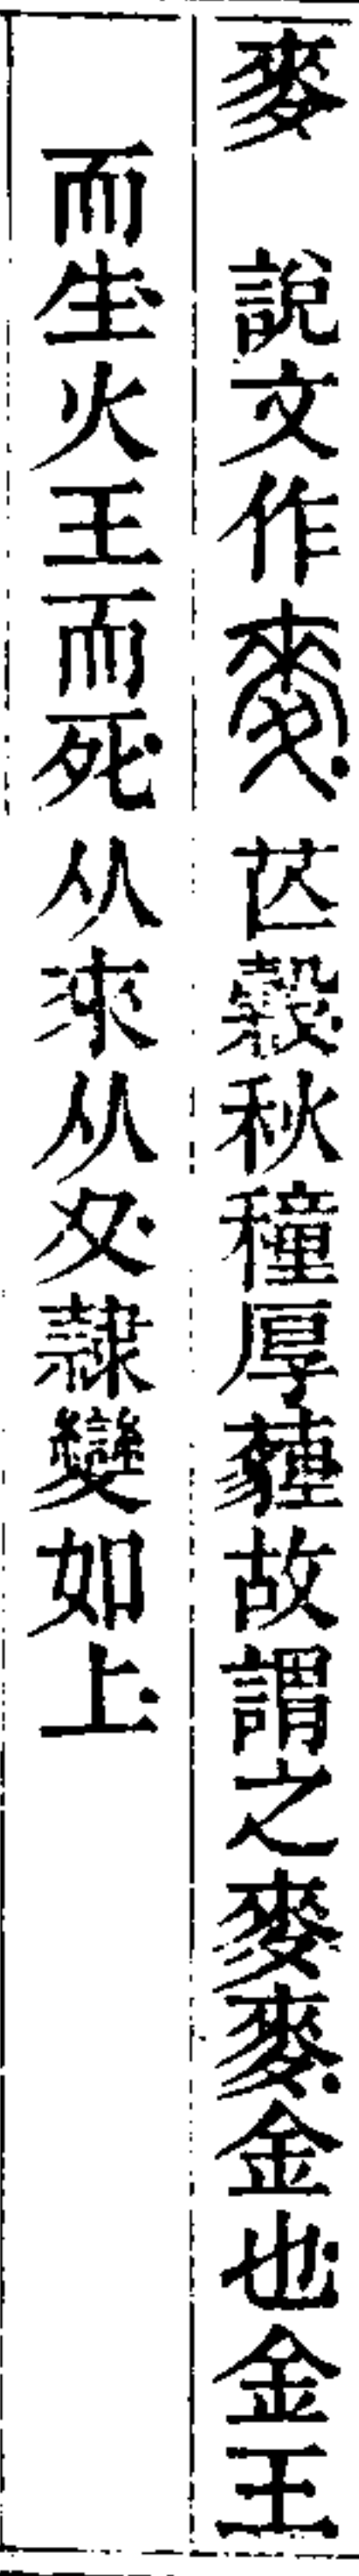 麥　說文作麥芒穀秋種厚薶故謂之麥麥金也金王
而生火王而死从來从夊隷變如上